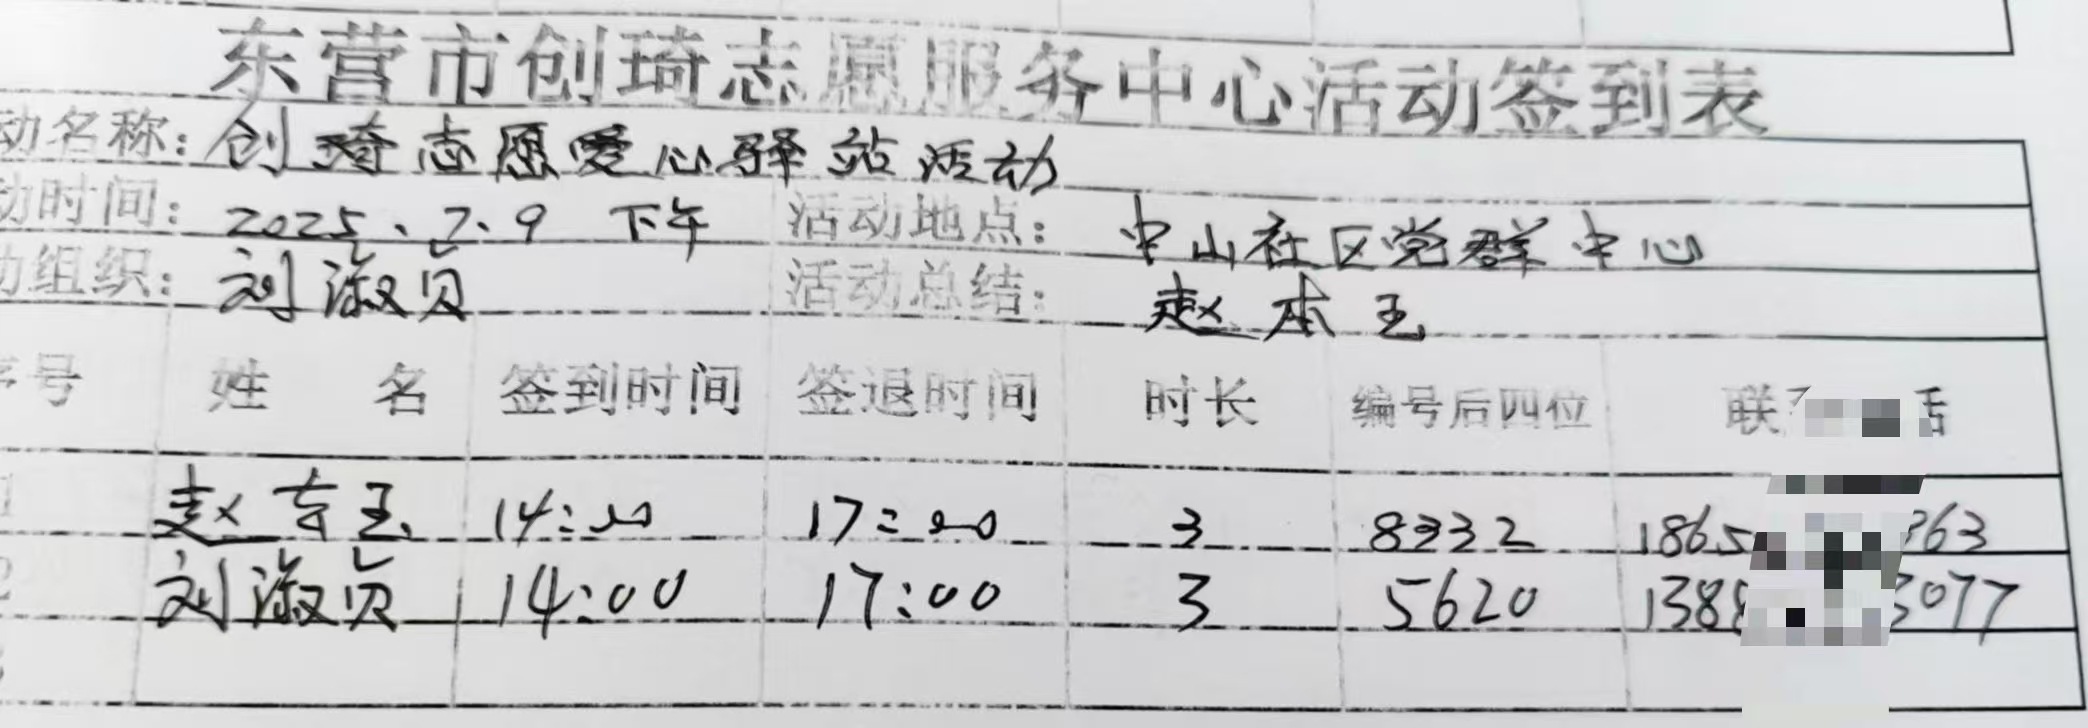 东营市创琦志愿服务中心活动签到表
动名称：创琦志愿爱心驿站活动
动时间：2025.2.9 下午 活动地点：中山社区党群中心
动组织：刘淑贞 活动总结：赵本玉
序号 姓名 签到时间 签退时间 时长 编号后四位 联 话
1 赵本玉 14:00 17:00 3 8332 1865 363
2 刘淑贞 14:00 17:00 3 5620 138 3077
3